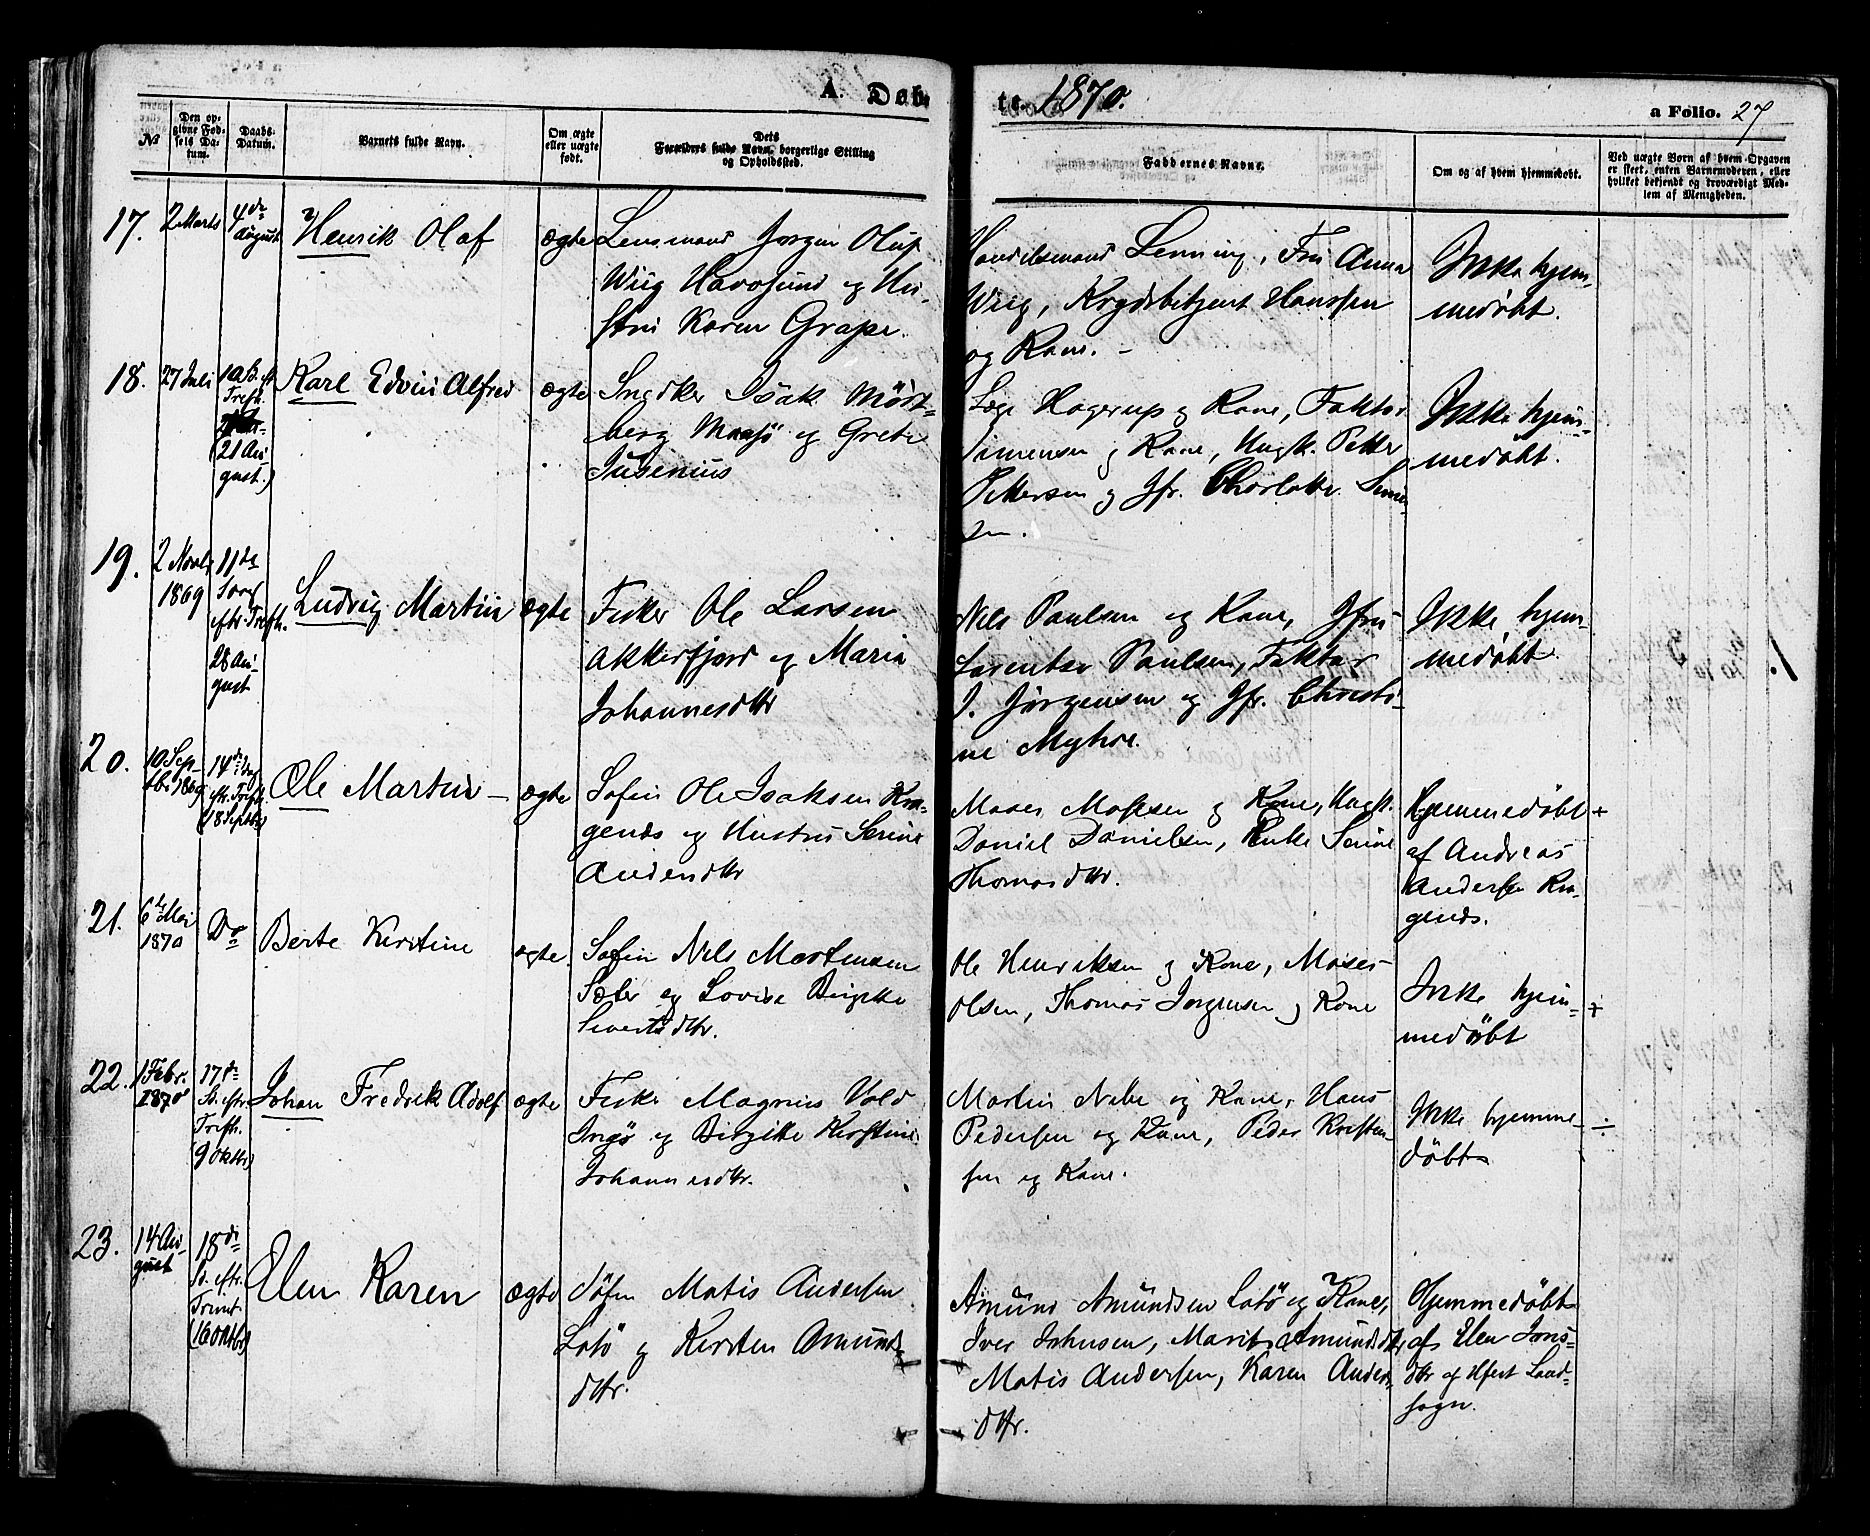 A. Døb
te. 1870.
a Folio. 27
№
Den op-
givne Fød-
sels Da-
tum.
Daabs-
Datum.
Barnets fulde Navn.
Om ægte
eller uægte
født.
Dets
Forældres fulde Navn, borgerlige Stilling
og Opholdssted.
Faddernes Navne.
Om og af hvem hjemmedøbt.
Ved uægte Børn af hvem Opgaven
er skeet, enten Barnemoderen, eller
hvilket bekjendt og troværdigt Med-
lem af Menigheden.
17. 2 Marts 4de August Henrik Olaf ægte
Lensmand Jørgen Oluf
Wiig Havøsund og Hu-
stru Karen Grape.
Handelsmand Lenning, Fru Anna
Wiig, Krydsbetjent Hanssen
og Kone. -
Ikke hjem-
medøbt.
18. 27 Juli 10 S. eft
Trefh.
(21 Au-
gust.)
Karl Edvin Alfred ægte
Snedker Isak Mört-
berg Maasø og Grete
Jusenius
Læge Hagerup og Kone, Faktor
Simensen og Kone, Ungk. Petter
Pettersen og Jfr. Charlotte Simen-
sen.
Ikke hjem-
medøbt.
19. 2 Novbr
1869
11de
Søng
eftr. Trefh.
28 Au-
gust
Ludvig Martin ægte
Fisker Ole Larsen
Akkerfjord og Maria
Johannesdtr
Nils Paulsen og Kone, Jfru
Lorentse Paulsen, Faktor
J. Jørgensen og Jfr. Christi-
ne Myhre.
Ikke hjem-
medøbt.
20. 10 Sep-
tbr 1869
14de Søg
eftr. Trefh.
(18 Septbr)
Ole Martin - ægte
Søfin Ole Isaksen Kra-
gends og Hustru Serine
Andersdtr
Moses Mossesen og Kone, Ungk.
Daniel Danielsen, Enke Serine
Thomasdtr.
Hjemmedøbt +
af Andreas
Anderse Kra-
gends.
21. 6te Mai
1870
Do
Berte Kirstine ægte.
Søfin Nils Mortensen
Sæter og Lovise Birgitte
Sivertsdtr.
Ole Henriksen og Kone, Moses
Olsen, Thomas Jørgensen og Kone
Ikke hjem- +
medøbt
22. 1 Febr.
1870
17de
S. eftr.
Trefh.
(9 Oktbr)
Johan Fredrik Adolf ægte
Fisker Magnus Vold
Ingø og Birgitte Kirstine
Johannesdtr.
Martin Nebe og Kone, Hans
Pedersen og Kone, Peder Kristen-
sen og Kone.
Ikke hjemme- ÷
døbt
23. 14 Au-
gust
18de
S. eftr.
Trint
(16 Oktbr)
Elen Karen ægte
Søfin Matis Andersen
Latø og Kirsten Amunds-
dtr.
Amund Amundsen Latø og Kone,
Iver Johnsen, Marit Amundsdtr,
Matis Andersen, Karen Anders-
dtr.
Hjemmedøbt
af Elen Jons-
dtr af Hfest Land-
sogn.